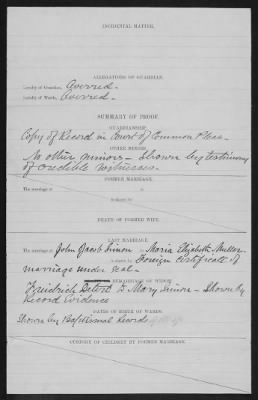 INCIDENTAL MATTER.
ALLEGATIONS OF GUARDIAN.
Loyalty of Guardian, Averred.
Loyalty of Wards, Averred.
SUMMARY OF PROOF.
GUARDIANSHIP.
Copy of Record in Court of Common Pleas.
OTHER MINORS.
No other minors – Shown by testimony
of credible witnesses.
FORMER MARRIAGE.
The marriage of
to
is shown by
DEATH OF FORMER WIFE.
LAST MARRIAGE.
The marriage of John Jacob Simon to Maria Elizabeth Muller
is shown by Foreign Certificate of
marriage under seal.
REMARRIAGE OF WIDOW.
Friedrich to Mary Simon – Shown by
Record Evidence
DATES OF BIRTH OF WARDS.
Shown by Baptismal Records
CUSTODY OF CHILDREN BY FORMER MARRIAGE.